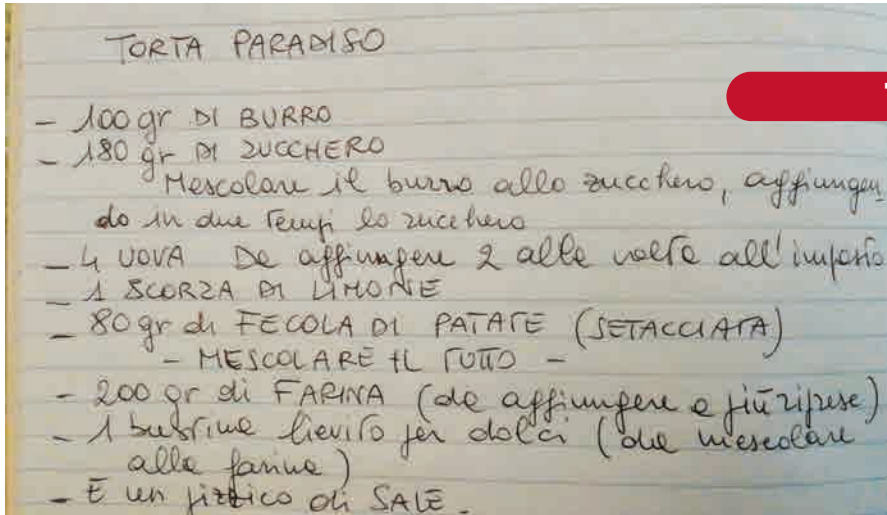 TORTA PARADISO
- 100 gr DI BURRO
- 180 gr DI ZUCCHERO
Mescolare il burro allo zucchero, aggiungen
do in due tempi lo zucchero
- 4 UOVA Da aggiungere 2 alla volta all'impasto
- 1 SCORZA DI LIMONE
- 80 gr di FECOLA DI PATATE (SETACCIATA)
- MESCOLARE IL TUTTO -
- 200 gr di FARINA (da aggiungere a più riprese)
- 1 bustina lievito per dolci (da mescolare
alla farina)
- E un pizzico di SALE.